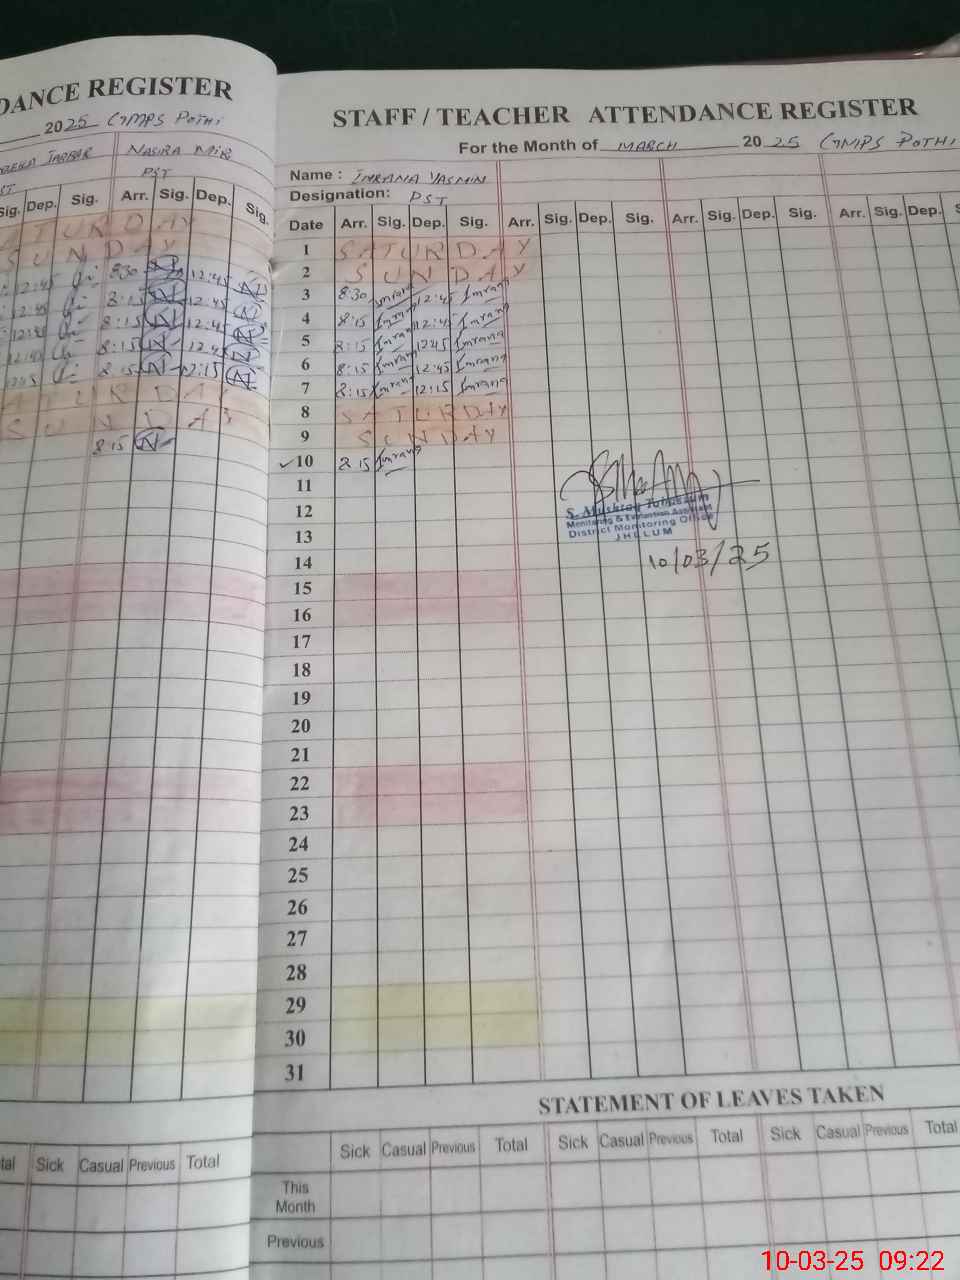 DANCE REGISTER
2025 GMPS POTHI
JABBAR NASIRA MIR
PST
Sig. Dep. Sig. Arr. Sig. Dep. Sig.
ATURDAY
SUNDAY
12:45 8:30 12:45
12:45 8:15 12:45
12:45 8:15 12:45
12:45 8:15 12:45
8:15 12:15
ATURDAY
SUNDAY
8:15
Sick Casual Previous Total
STAFF / TEACHER ATTENDANCE REGISTER
For the Month of MARCH 2025 GMPS POTHI
Name : IMRANA YASMIN
Designation: PST
Date Arr. Sig. Dep. Sig. Arr. Sig. Dep. Sig. Arr. Sig. Dep. Sig. Arr. Sig. Dep.
1 SATURDAY
2 SUNDAY
3 8:30 Imrana 12:45 Imrana
4 8:15 Imrana 12:45 Imrana
5 8:15 Imrana 12:45 Imrana
6 8:15 Imrana 12:45 Imrana
7 8:15 Imrana 12:15 Imrana
8 SATURDAY
9 SUNDAY
10 8:15 Imrana
11
12
13
14
15
16
17
18
19
20
21
22
23
24
25
26
27
28
29
30
31
S. Mushtaq Tabassum
Monitoring & Evaluation Assistant
District Monitoring Office
JHELUM
10/03/25
STATEMENT OF LEAVES TAKEN
Sick Casual Previous Total Sick Casual Previous Total Sick Casual Previous Total
This
Month
Previous
10-03-25 09:22